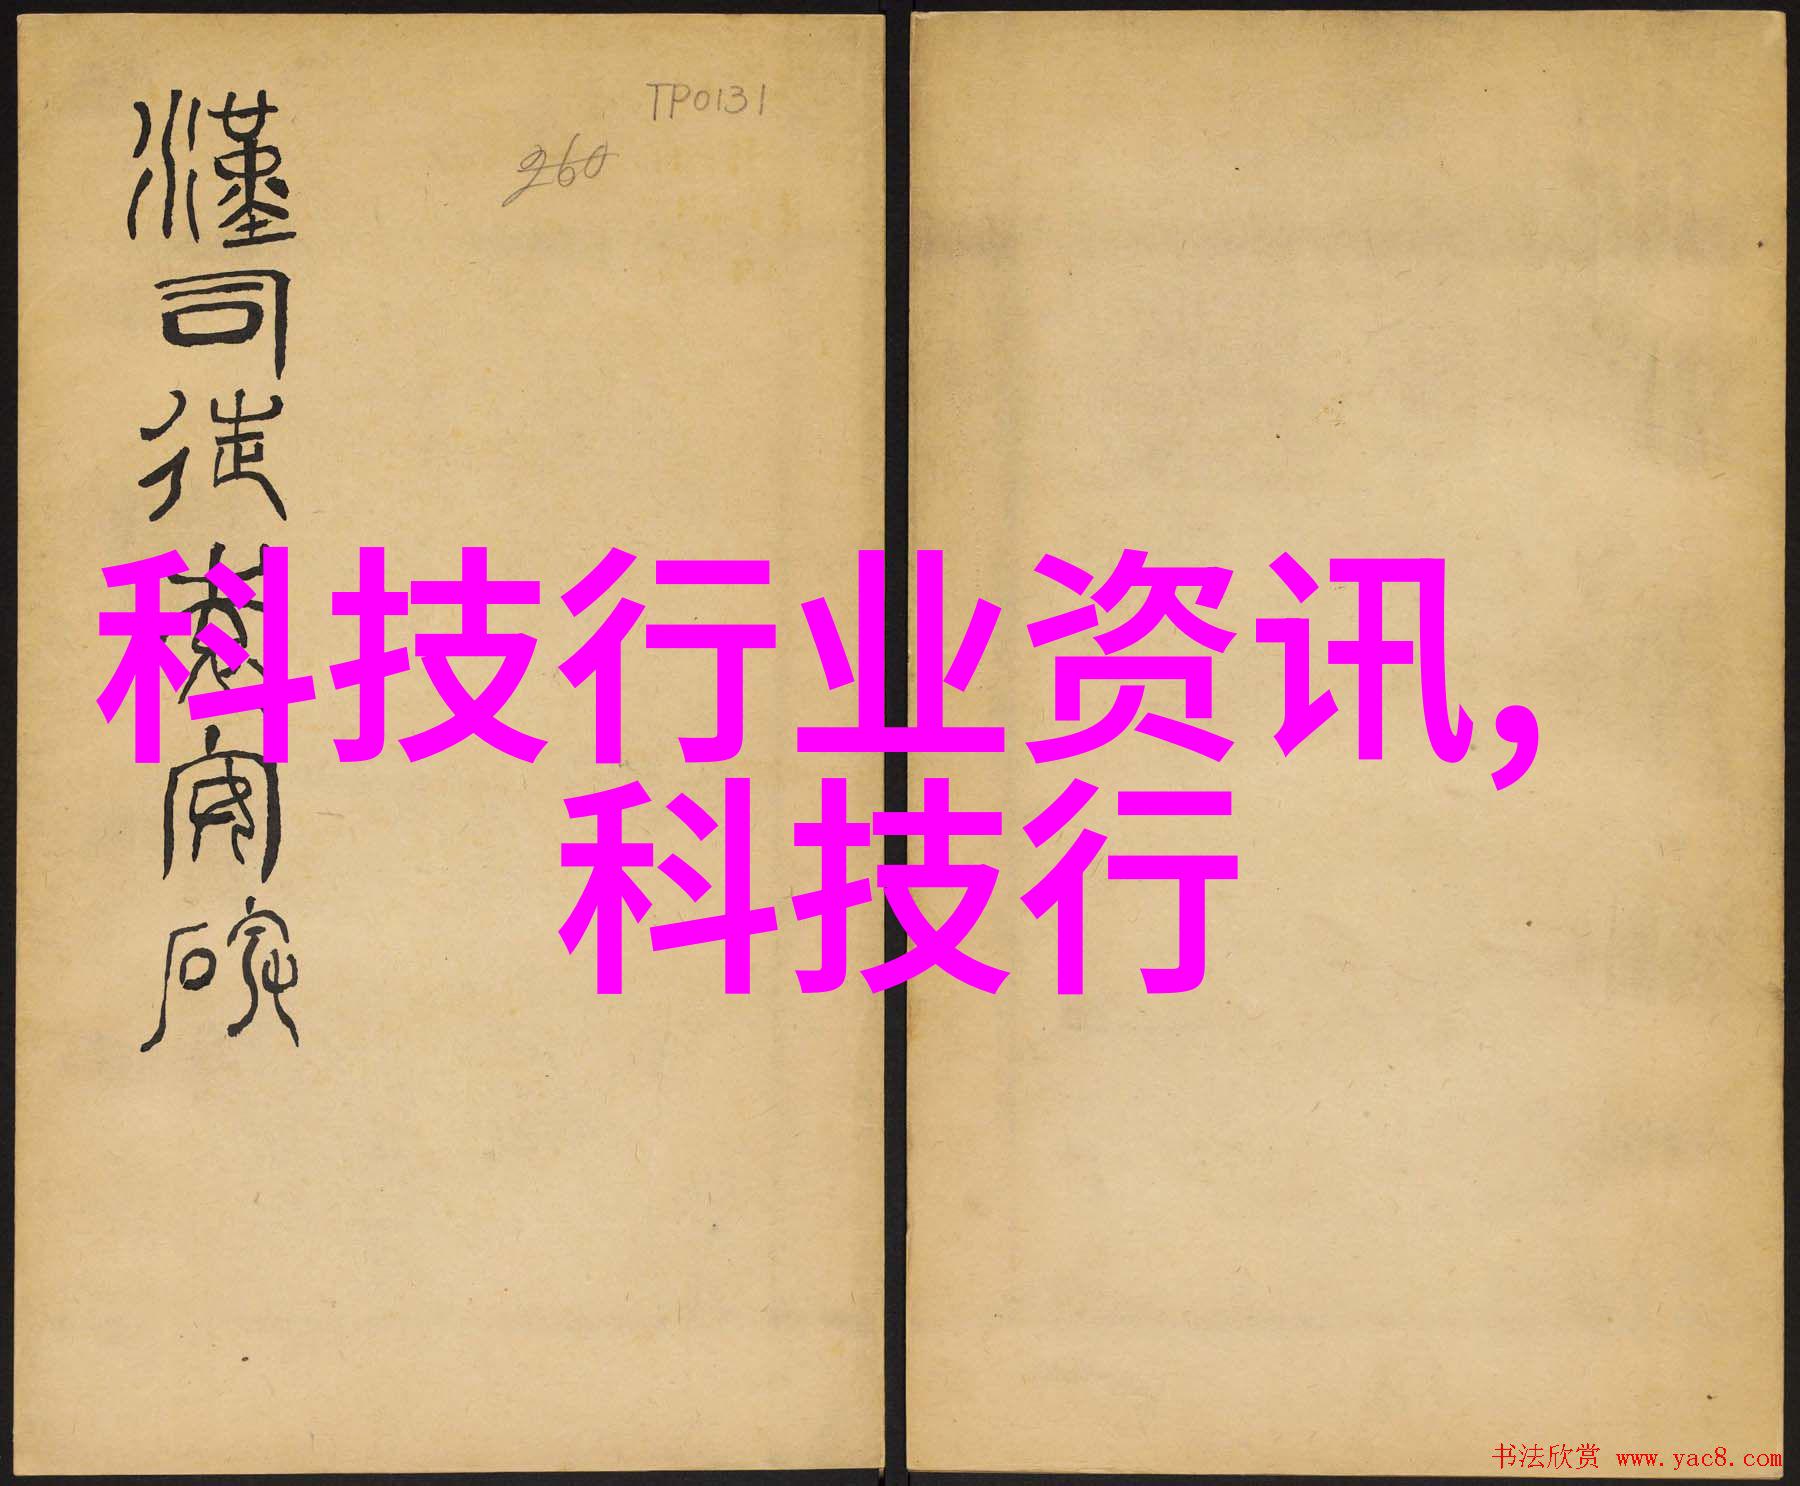 漢司徒袁安碑
TP0131
260
科技行业资讯,
科技行
书法欣赏 www.yac8.com